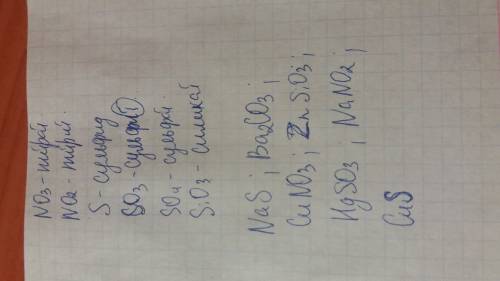 NO3 - нітрат
NO2 - нітрит
S - сульфид
SO3 - сульфіт
SO4 - сульфат
SiO3 - силикат
NaS ; Ba2CO3 ;
CuNO3 ; ZnSiO3 ;
HgSO3 ; NaNO2 ;
CuS